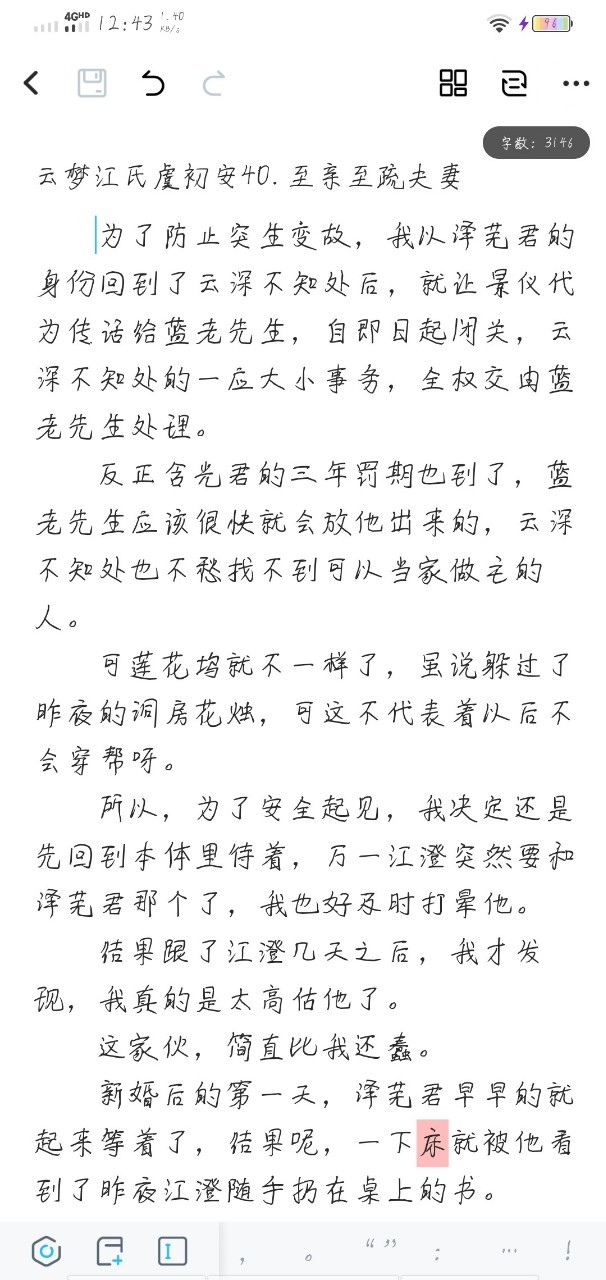 4GHD 12:43 1.40 KB/s 96
字数：3146
云梦江氏虞初安40.至亲至疏夫妻
为了防止突生变故，我以泽芜君的
身份回到了云深不知处后，就让景仪代
为传话给蓝老先生，自即日起闭关，云
深不知处的一应大小事务，全权交由蓝
老先生处理。
反正含光君的三年罚期也到了，蓝
老先生应该很快就会放他出来的，云深
不知处也不愁找不到可以当家做主的
人。
可莲花坞就不一样了，虽说躲过了
昨夜的洞房花烛，可这不代表着以后不
会穿帮呀。
所以，为了安全起见，我决定还是
先回到本体里待着，万一江澄突然要和
泽芜君那个了，我也好及时打晕他。
结果跟了江澄几天之后，我才发
现，我真的是太高估他了。
这家伙，简直比我还蠢。
新婚后的第一天，泽芜君早早的就
起来等着了，结果呢，一下床就被他看
到了昨夜江澄随手扔在桌上的书。
， 。 “” ： … ！